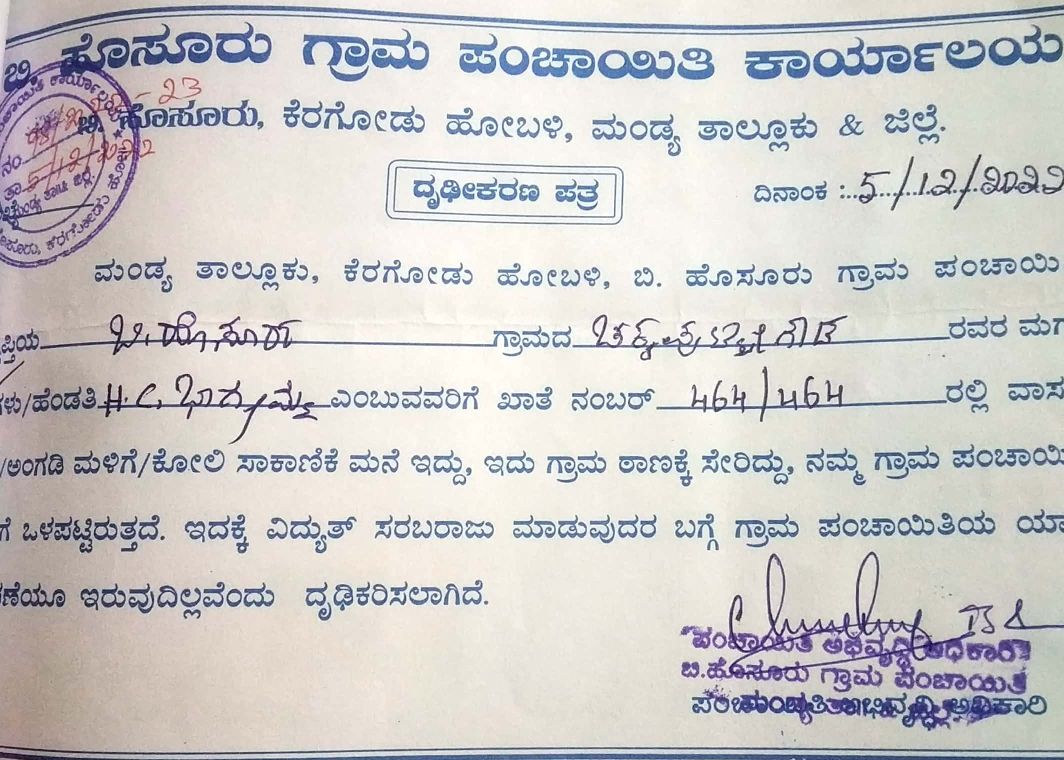 ಬಿ. ಹೊಸೂರು ಗ್ರಾಮ ಪಂಚಾಯಿತಿ ಕಾರ್ಯಾಲಯ
ಬಿ. ಹೊಸೂರು, ಕೆರಗೋಡು ಹೋಬಳಿ, ಮಂಡ್ಯ ತಾಲ್ಲೂಕು & ಜಿಲ್ಲೆ.
ನಂ
ತಾ 5/12/2022
ದೃಢೀಕರಣ ಪತ್ರ
ದಿನಾಂಕ : 5/12/2022
ಮಂಡ್ಯ ತಾಲ್ಲೂಕು, ಕೆರಗೋಡು ಹೋಬಳಿ, ಬಿ. ಹೊಸೂರು ಗ್ರಾಮ ಪಂಚಾಯಿ
ಪ್ತಿಯ ಬಿ. ಹೊಸೂರು ಗ್ರಾಮದ ರವರ ಮಗ
ಗಳು/ಹೆಂಡತಿ H.C. ಭಾಗ್ಯಮ್ಮ ಎಂಬುವವರಿಗೆ ಖಾತೆ ನಂಬರ್ 464/464 ರಲ್ಲಿ ವಾಸ
/ಅಂಗಡಿ ಮಳಿಗೆ/ಕೋಲಿ ಸಾಕಾಣಿಕೆ ಮನೆ ಇದ್ದು, ಇದು ಗ್ರಾಮ ಠಾಣಕ್ಕೆ ಸೇರಿದ್ದು, ನಮ್ಮ ಗ್ರಾಮ ಪಂಚಾಯಿ
ಗೆ ಒಳಪಟ್ಟಿರುತ್ತದೆ. ಇದಕ್ಕೆ ವಿದ್ಯುತ್ ಸರಬರಾಜು ಮಾಡುವುದರ ಬಗ್ಗೆ ಗ್ರಾಮ ಪಂಚಾಯಿತಿಯ ಯಾ
ಣೆಯೂ ಇರುವುದಿಲ್ಲವೆಂದು ದೃಢಿಕರಿಸಲಾಗಿದೆ.
ಪಂಚಾಯಿತಿ ಅಭಿವೃದ್ಧಿ ಅಧಿಕಾರಿ
ಬಿ.ಹೊಸೂರು ಗ್ರಾಮ ಪಂಚಾಯಿತಿ
ಪಂಚಾಯಿತಿ ಅಭಿವೃದ್ಧಿ ಅಧಿಕಾರಿ